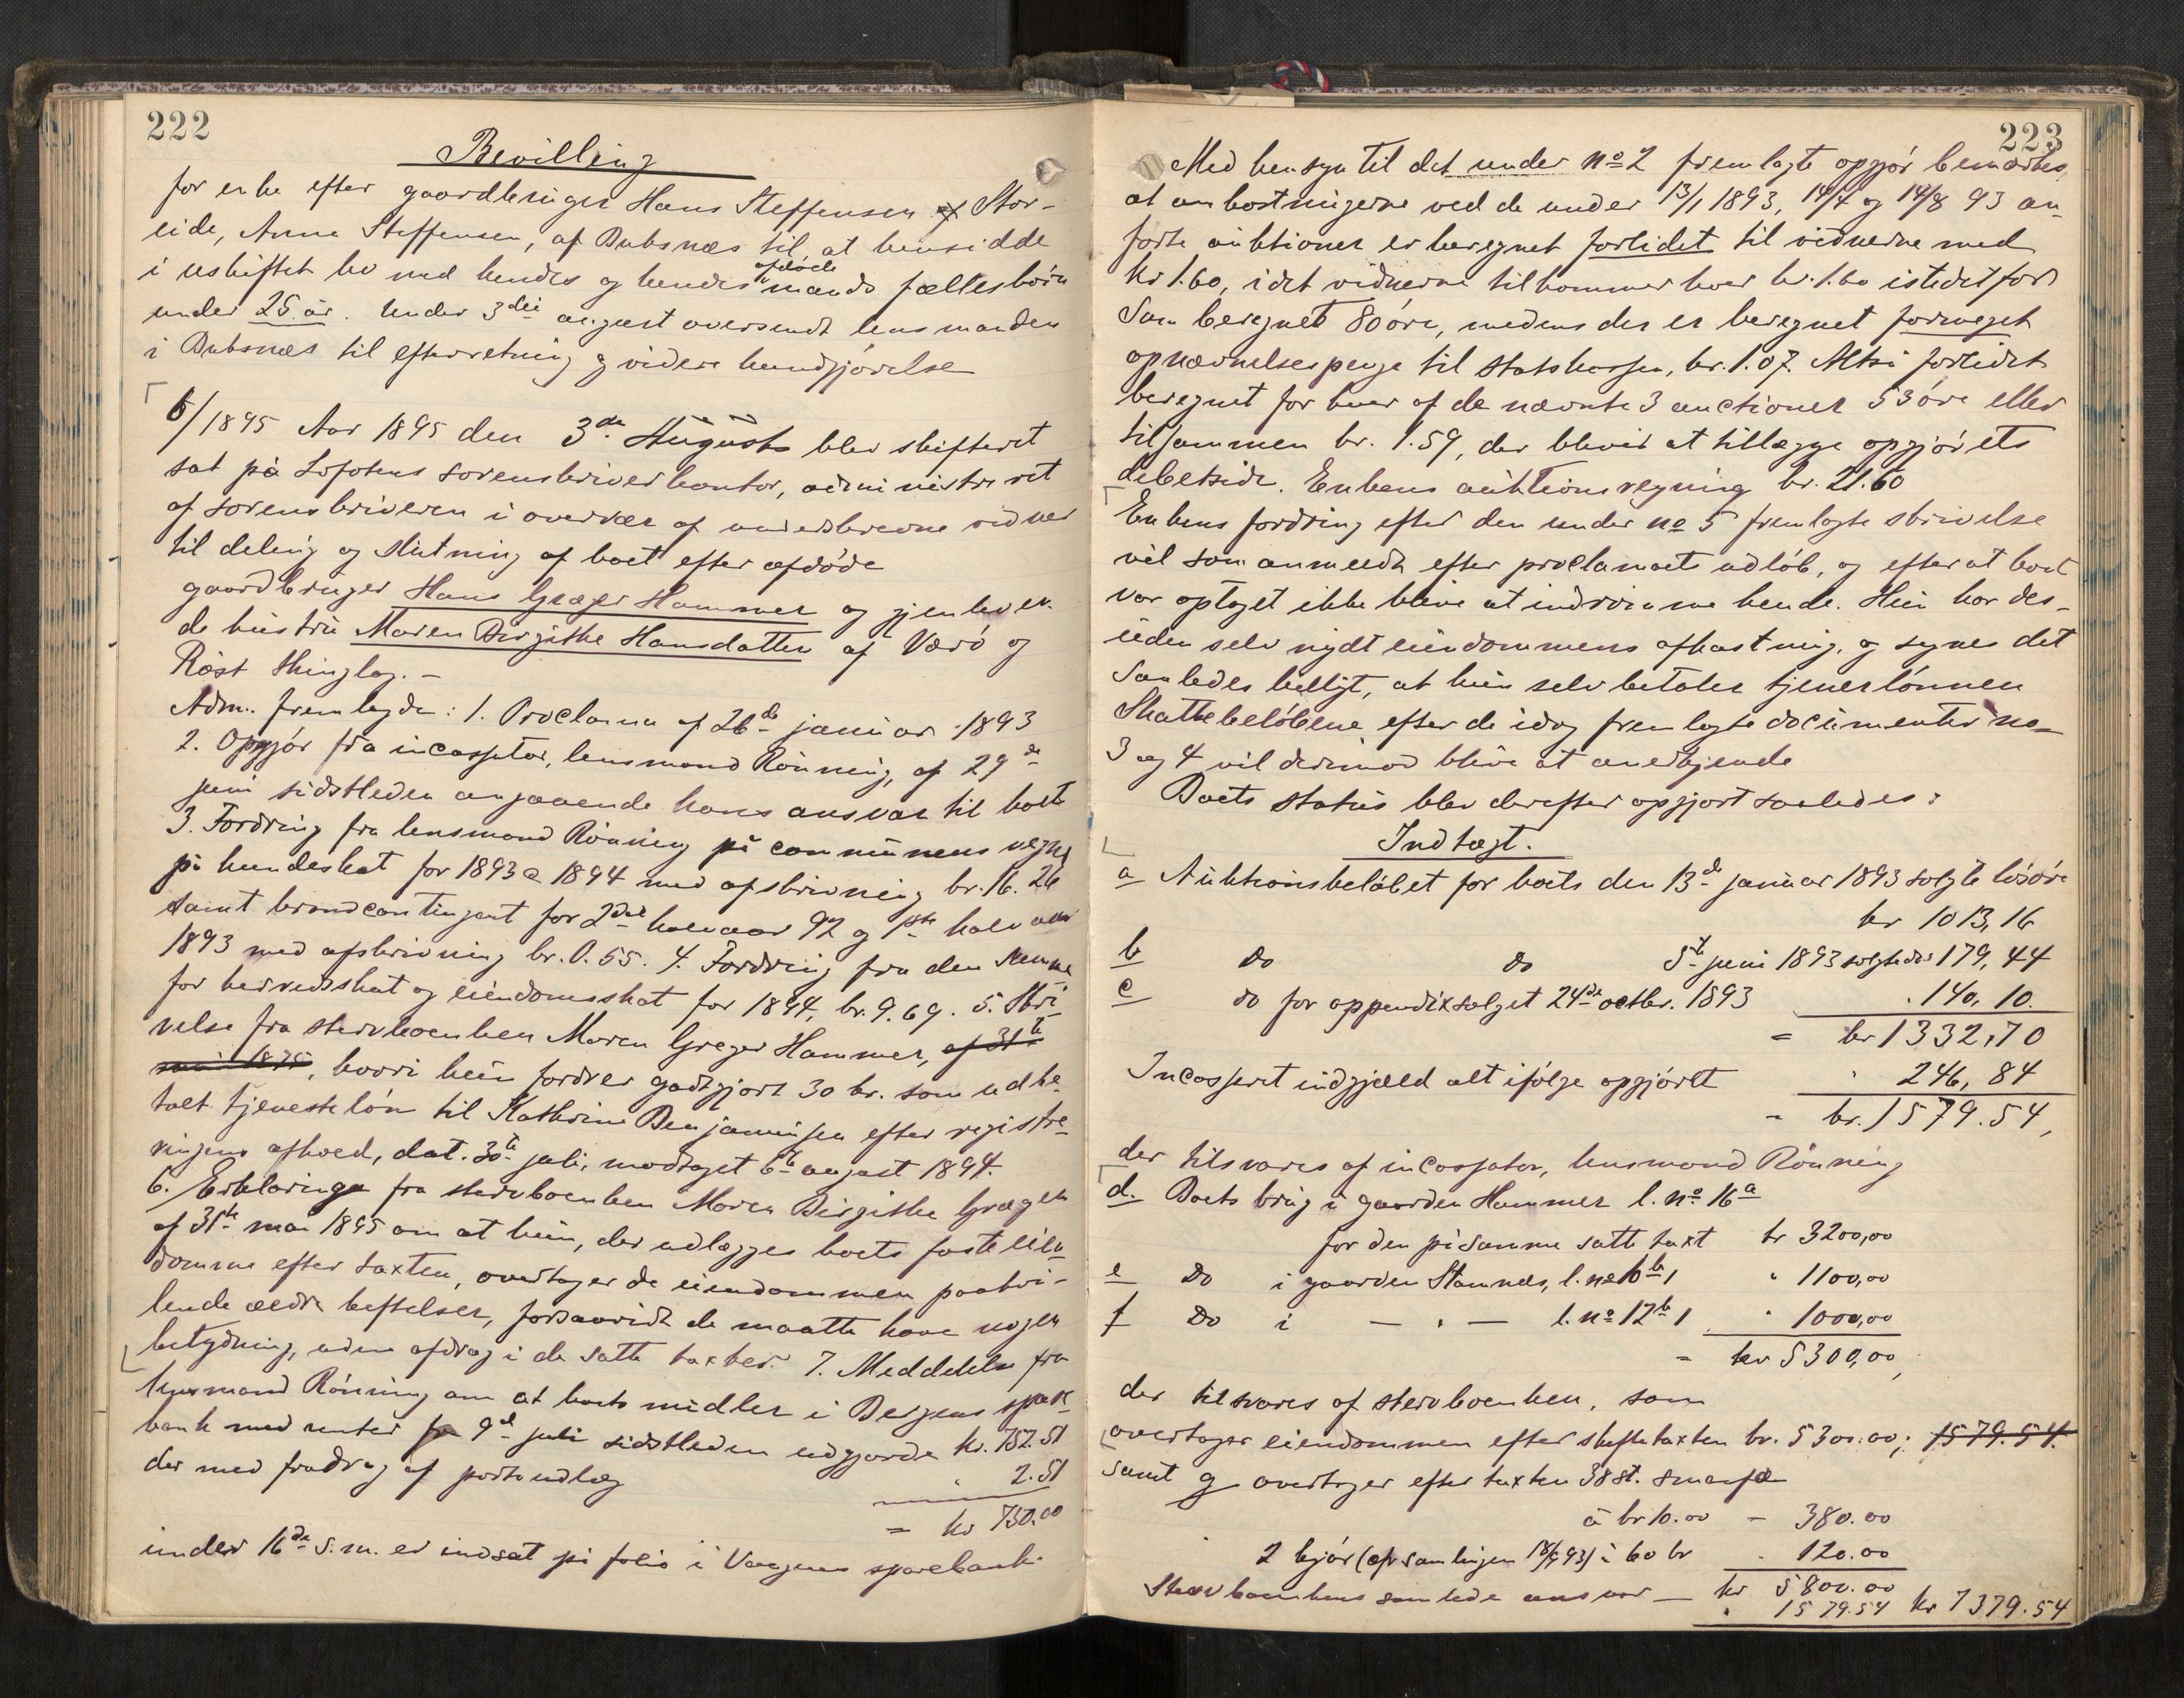 222
Bevilling
for enke efter gaardbruger Hans Steffensen af Stor-
eide, Anne Steffensen, af Buksnæs til at hensidde
i uskiftet bo med hendes og hendes afdöde mands fællesbörn
under 25 år. Under 3die august oversendt lensmanden
i Buksnæs til efterretning og videre kundgjörelse
6/1895 Aar 1895 den 3de August blev skifteret
sat på Lofotens sorenskriverkontor, administreret
af sorenskriveren i overvær af underskrevne vidner
til deling og slutning af boet efter afdöde
gaardbruger Hans Græger Hammer og gjenleven-
de hustru Maren Birgithe Hansdatter af Værö og
Röst thinglag. -
Adm. fremlagde: 1. Proclama af 26de januar 1893
2. Opgjör fra incassator, lensmand Rönning, af 29de
juni sidstleden angaaende hans ansvar til boet
3. Fordring fra lensmand Rönning på communens vegne
på hundeskat for 1893 a 1894 med afskrivning kr. 16.26
samt brandcontingent for 2det halvaar 92 og 1ste halvaar
1893 med afskrivning kr. 0.55. 4. Fordring fra den samme
for herredsskat og eiendomsskat for 1894, kr. 9.69. 5. Skri-
velse fra stervboenken Maren Greger Hammer, af 31te
mai 1895, hvori hun fordrer godtgjort 30 kr. som udbe-
talt tjenestelön til Kathrine Benjaminsen efter registre-
ringens afhold, dat. 30te juli, modtaget 6te august 1894.
6. Erklæringe fra stervboenken Maren Birgithe Græger
af 31te mai 1895 om at hun, der udlægges boets faste eien-
domme efter taxten, overtager de eiendommen paahvi-
lende ældre heftelser, forsaavidt de maatte have nogen
betydning, uden afdrag i de satte taxter. 7. Meddelelse fra
lensmand Rönning om at boets midler i Bergens spare-
bank med renter fra 9de juli sidstleden udgjorde kr. 752.51
der med fradrag af portoudlæg 2.51
= kr 750.00
under 16de s.m. er indsat på folio i Vaagens sparebank.
223
Med hensyn til det under No 2 fremlagte opgjör bemærkes
at omkostningerne ved de under 13/1 1893, 14/4 og 14/8 93 an-
förte auktioner er beregnet forlidet til vidnerne med
kr 1.60, idet vidnerne tilkommer hver kr. 1.60 istedetfor
som beregnet 80 öre, medens der er beregnet formeget
opnævnelsespenge til statskassen, kr. 1.07. Altså forlidet
beregnet for hver af de nævnte 3 auctioner 53 öre eller
tilsammen kr. 1.59, der bliver at tillægge opgjörets
debetside. Enkens auktionsregning kr. 21.60
Enkens fordring efter den under No 5 fremlagte skrivelse
vil som anmeldt efter proclamaets udlöb, og efterat boet
var optaget ikke blive at indrömme hende. Hun har des-
uden selv nydt eiendommens afkastning, og synes det
saaledes billigt, at hun selv betaler tjenerlönnen
Skattebelöbene efter de idag fremlagte documenter no
3 og 4 vil derimod blive at anerkjende
Boets status blev derefter opgjort saaledes:
Indtægt.
a Auktionsbelöbet for boets den 13de januar 1893 solgte lösöre
kr 1013,16
b do do 5te juni 1893 solgte do: 179,44
c do for appendixsalget 24de octbr. 1893 . 140,10.
= kr 1332,70
Incasseret indgjæld alt ifölge opgjöret " 246,84
= kr. 1579.54,
der tilsvares af incassator, lensmand Rönning
d. Boets brug i gaarden Hammer l. No 16a
for den på samme satte taxt kr 3200,00
e Do i gaarden Stamnæs, l. no 10b1 " 1100,00
f Do i — " — l. No 12b1 " 1000,00
= kr 5300,00,
der tilsvares af stervboenken, som
overtager eiendommen efter skiftetaxten kr. 5300.00; 1579.54.
samt g overtager efter taxten 38 st. smaafæ
à kr 10.00 - 380.00
2 kjör (efr samlingen 18/9 93) à 60 kr - 120.00
Stervboenkens samlede ansvar — kr 5800.00
" 1579.54 kr 7379.54